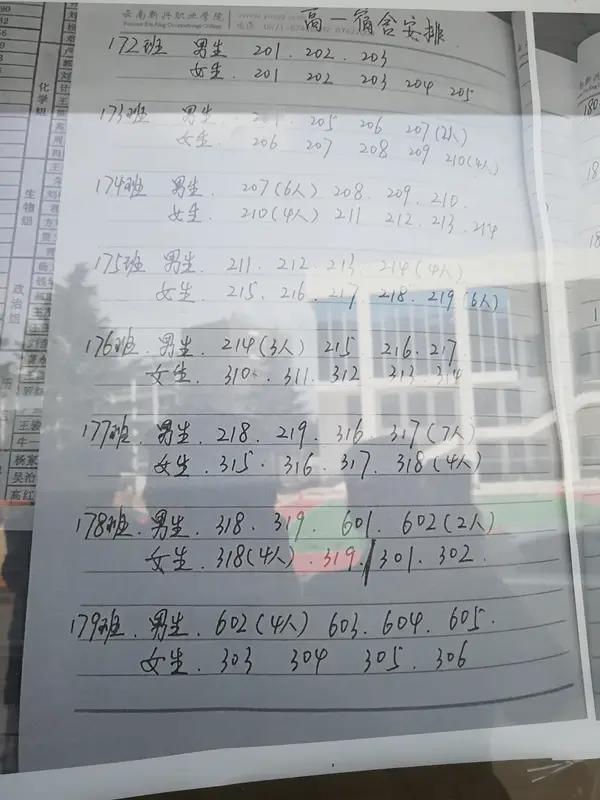 云南新兴职业学院
高一宿舍安排
172班 男生 201. 202. 203
女生. 201 202 203 204 205
173班 男生. 205 206 207(2人)
女生. 206 207 208 209 210(4人)
174班 男生. 207(6人) 208. 209. 210.
女生. 210(4人) 211 212. 213. 214
175班 男生. 211. 212. 213. 214(4人)
女生. 215. 216. 217. 218. 219(6人)
176班. 男生. 214(3人) 215 216. 217
女生. 310. 311. 312 313. 314
177班. 男生. 218. 219. 316. 317(7人)
女生. 315. 316. 317. 318(4人)
178班. 男生. 318. 319. 601. 602(2人)
女生. 318(4人). 319. / 301. 302.
179班. 男生. 602(4人) 603. 604. 605.
女生. 303 304 305. 306
化学组
生物组
政治组